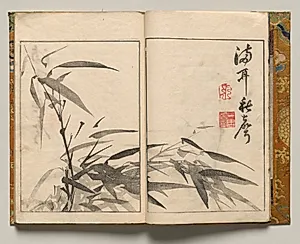 滿耳秋聲